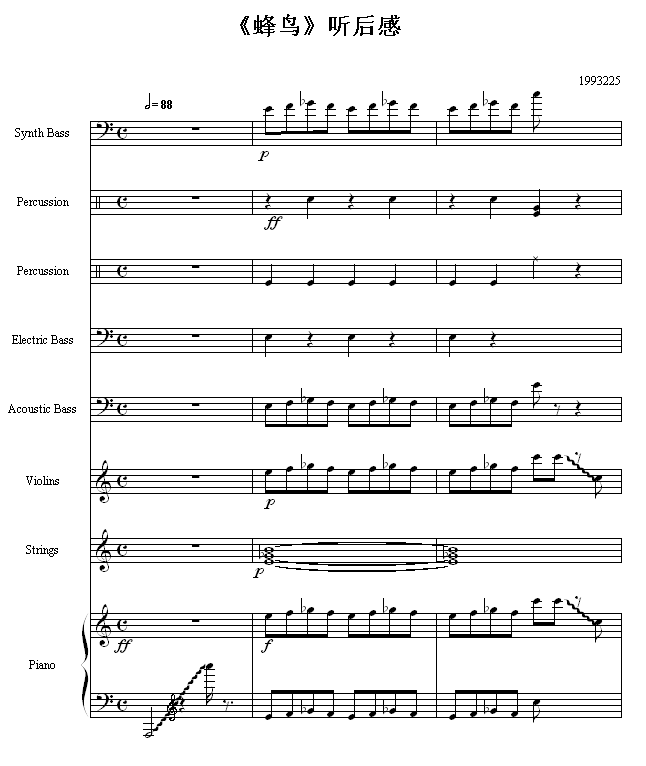 《蜂鸟》听后感
1993225
=88
Synth Bass
p
Percussion
ff
Percussion
Electric Bass
Acoustic Bass
Violins
p
Strings
p
ff
f
Piano